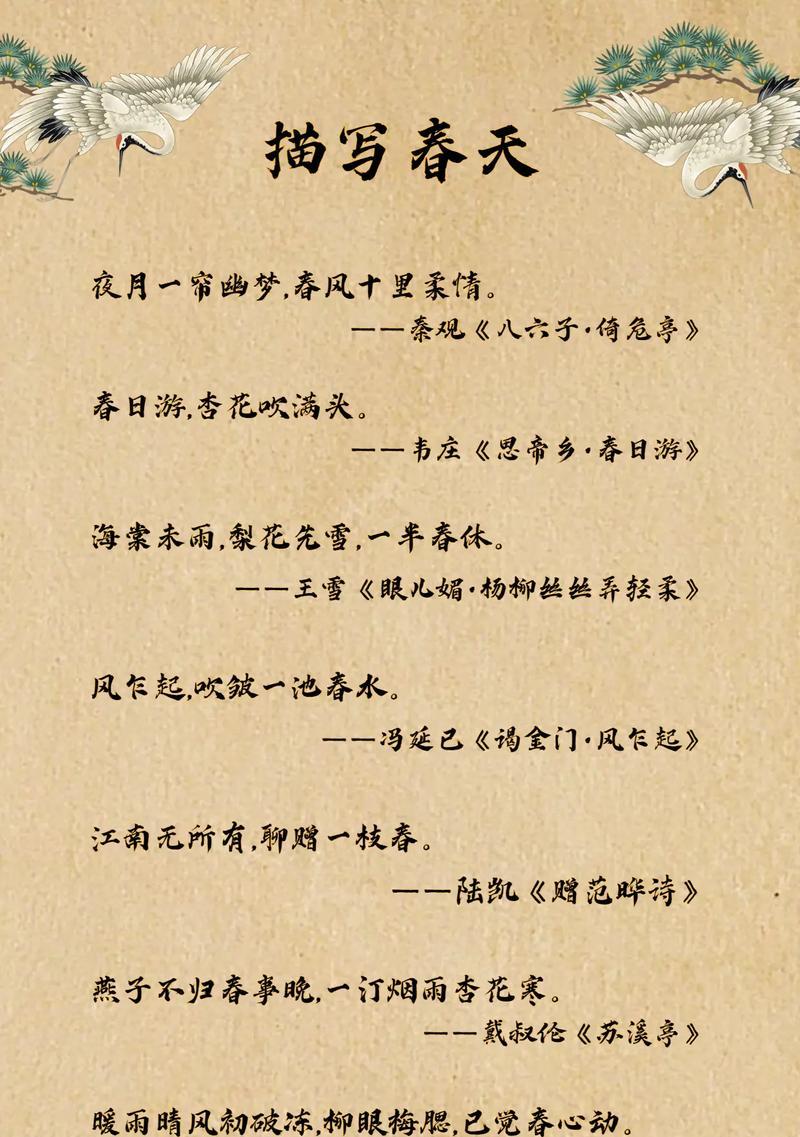 描写春天
夜月一帘幽梦,春风十里柔情。
——秦观《八六子·倚危亭》
春日游,杏花吹满头。
——韦庄《思帝乡·春日游》
海棠未雨,梨花先雪,一半春休。
——王雪《眼儿媚·杨柳丝丝弄轻柔》
风乍起,吹皱一池春水。
——冯延已《谒金门·风乍起》
江南无所有,聊赠一枝春。
——陆凯《赠范晔诗》
燕子不归春事晚,一汀烟雨杏花寒。
——戴叔伦《苏溪亭》
暖雨晴风初破冻,柳眼梅腮,已觉春心动。